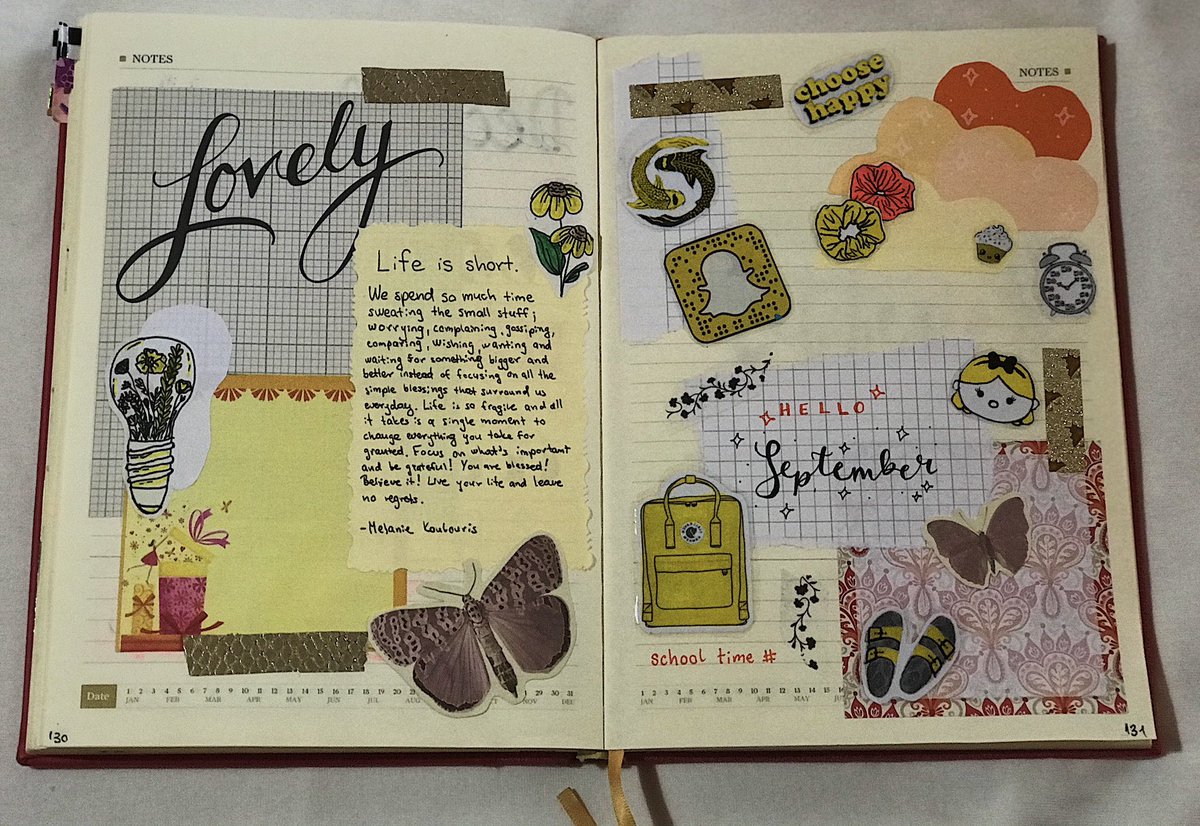 NOTES
Lovely
Life is short.
We spend so much time
sweating the small stuff;
worrying, complaining, gossiping,
comparing, wishing, wanting and
waiting for something bigger and
better instead of focusing on all the
simple blessings that surround us
everyday. Life is so fragile and all
it takes is a single moment to
change everything you take for
granted. Focus on what's important
and be grateful! You are blessed!
Believe it! Live your life and leave
no regrets.
-Melanie Koulouris
Date
1 2 3 4 5 6 7 8 9 10 11 12 13 14 15 16 17 18 19 20
29 30 31
JAN FEB MAR APR MAY JUN JUL
NOV DEC
130
NOTES
choose
happy
HELLO
September
school time #
1 2 3 4 5 6 7 8 9 10 11 12 13 14 15 16
JAN FEB MAR APR MAY
131